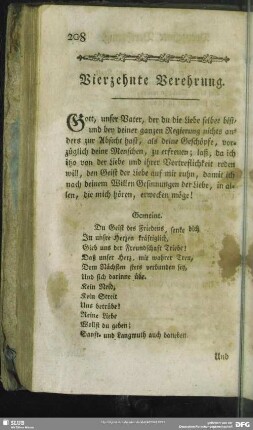 208
Vierzehnte Verehrung.
Gott, unser Vater, der du die Liebe selbst bist,
und bey deiner ganzen Regierung nichts an-
ders zur Absicht hast, als deine Geschöpfe, vor-
züglich deine Menschen, zu erfreuen; laß, da ich
itzo von der Liebe und ihrer Vortreflichkeit reden
will, den Geist der Liebe auf mir ruhn, damit ich
nach deinem Willen Gesinnungen der Liebe, in al-
len, die mich hören, erwecken möge!
Gemeine.
Du Geist des Friedens, senke dich
In unsre Herzen kräftiglich,
Gieb uns der Freundschaft Triebe!
Daß unser Herz, mit wahrer Treu,
Dem Nächsten stets verbunden sey,
Und sich darinne übe.
Kein Neid,
Kein Streit
Uns betrübe!
Reine Liebe
Wollst du geben!
Sanft- und Langmuth auch daneben
Und
SLUB
DFG